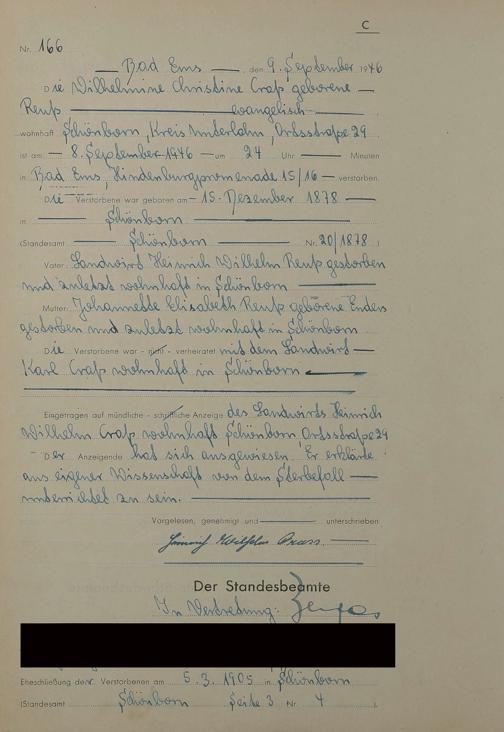 C
Nr. 166
Bad Ems, den 9. September 1946
Die Wilhelmine Christine Craß geborene
Reuß evangelisch
wohnhaft Schönborn, Kreis Unterlahn, Ortsstraße 29
ist am 8. September 1946 um 24 Uhr Minuten
in Bad Ems, Hindenburgpromenade 15/16 verstorben.
Die Verstorbene war geboren am 15. Dezember 1878
in Schönborn
(Standesamt Schönborn Nr. 20/1878)
Vater: Landwirt Heinrich Wilhelm Reuß gestorben
und zuletzt wohnhaft in Schönborn
Mutter: Johannette Elisabeth Reuß geborene Enders
gestorben und zuletzt wohnhaft in Schönborn
Die Verstorbene war - nicht - verheiratet mit dem Landwirt
Karl Craß wohnhaft in Schönborn
Eingetragen auf mündliche - schriftliche Anzeige des Landwirts Heinrich
Wilhelm Craß wohnhaft Schönborn Ortsstraße 29
Der Anzeigende hat sich ausgewiesen. Er erklärte
aus eigener Wissenschaft von dem Sterbefall
unterrichtet zu sein.
Vorgelesen, genehmigt und unterschrieben
Heinrich Wilhelm
Der Standesbeamte
In Vertretung:
Eheschließung der Verstorbenen am 5.3.1905 in Schönborn
(Standesamt Schönborn Seite 3 Nr. 4)